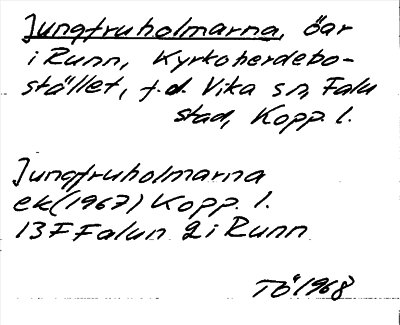 Jungfruholmarna, öar
i Runn, Kyrkoherdebo-
stället, f.d. Vika sn, Falu
stad, Kopp. l.
Jungfruholmarna
ek (1967) Kopp. l.
13F Falun 2 i Runn
Tö 1968